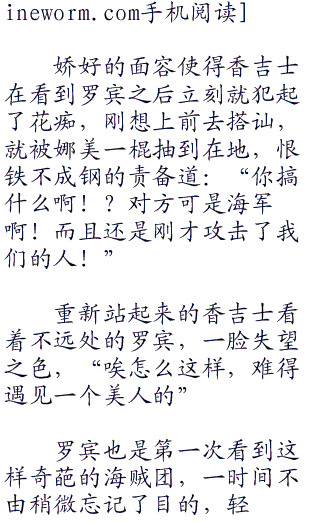 ineworm.com手机阅读]
娇好的面容使得香吉士
在看到罗宾之后立刻就犯起
了花痴，刚想上前去搭讪，
就被娜美一棍抽到在地，恨
铁不成钢的责备道：“你搞
什么啊！？对方可是海军
啊！而且还是刚才攻击了我
们的人！”
重新站起来的香吉士看
着不远处的罗宾，一脸失望
之色，“唉怎么这样，难得
遇见一个美人的”
罗宾也是第一次看到这
样奇葩的海贼团，一时间不
由稍微忘记了目的，轻